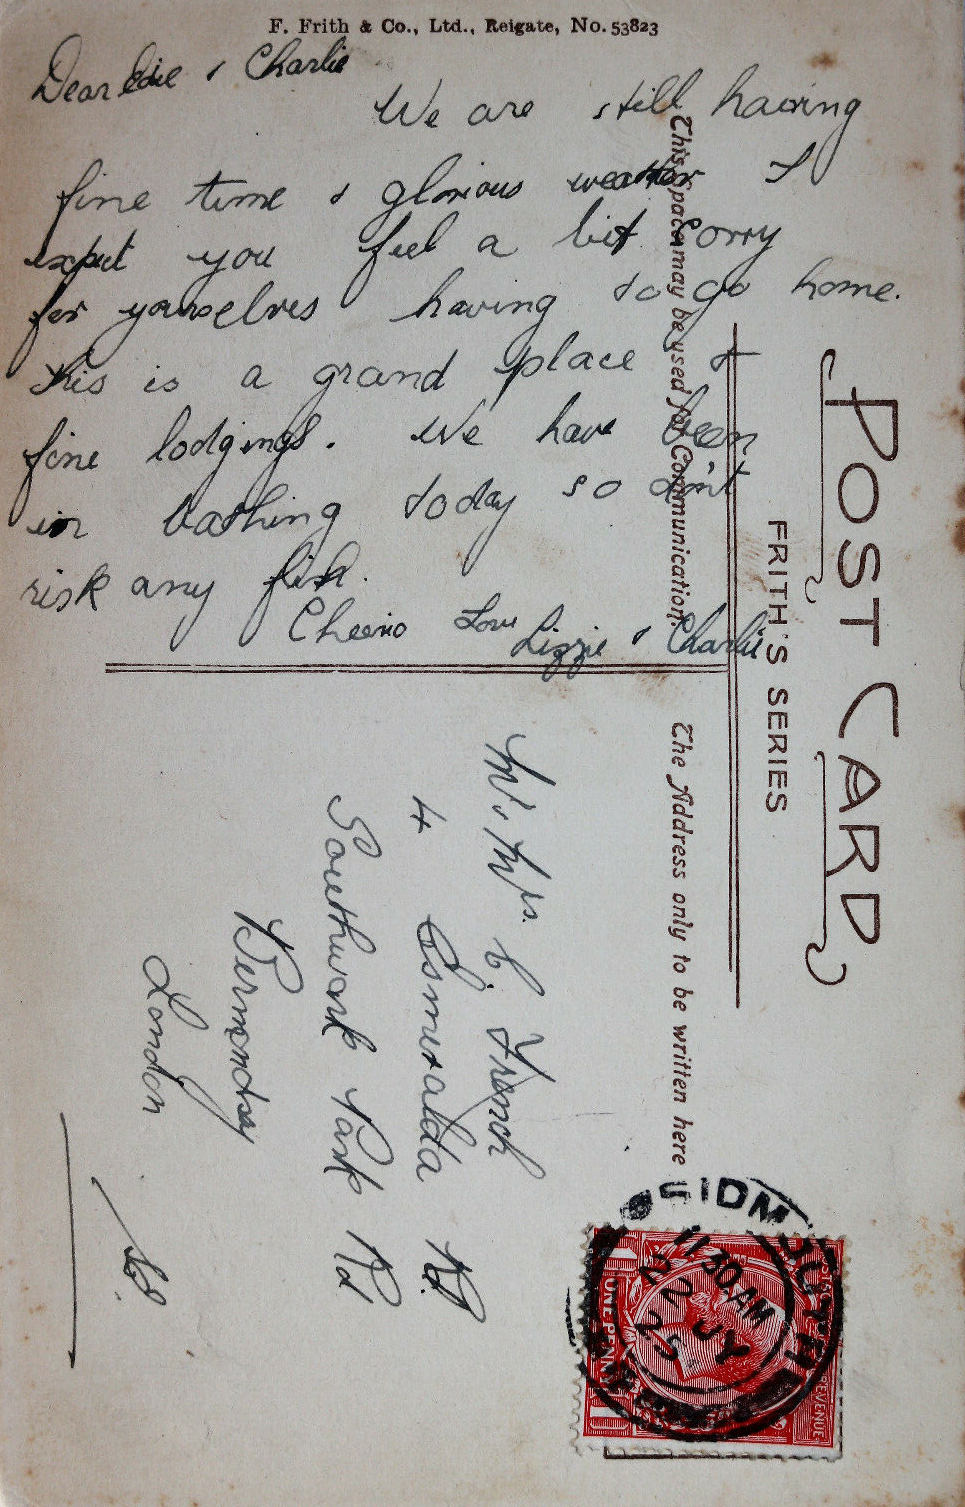 F. Frith & Co., Ltd., Reigate, No. 53823
Dear Edie & Charlie
We are still having
fine time & glorious weather I
expect you feel a bit sorry
for yourselves having to go home.
this is a grand place &
fine lodgings. We have been
in bathing today so don't
risk any fish.
Cheerio Love Lizzie & Charlie
POST CARD
FRITH'S SERIES
This space may be used for Communication.
The Address only to be written here
Mr & Mrs. C. French
4 Esmeralda Rd.
Southwark Park Rd
Bermondsey
London
SIDMOUTH
11 30 AM
22 JY
25
ONE PENNY
REVENUE